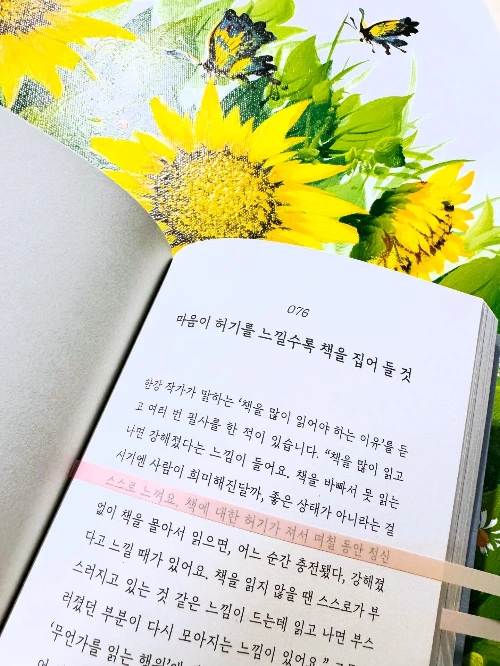 076
마음이 허기를 느낄수록 책을 집어 들 것
한강 작가가 말하는 '책을 많이 읽어야 하는 이유'를 듣
고 여러 번 필사를 한 적이 있습니다. "책을 많이 읽고
나면 강해졌다는 느낌이 들어요. 책을 바빠서 못 읽는
시기엔 사람이 희미해진달까, 좋은 상태가 아니라는 걸
스스로 느껴요. 책에 대한 허기가 져서 며칠 동안 정신
없이 책을 몰아서 읽으면, 어느 순간 충전됐다, 강해졌
다고 느낄 때가 있어요. 책을 읽지 않을 땐 스스로가 부
스러지고 있는 것 같은 느낌이 드는데 읽고 나면 부스
러졌던 부분이 다시 모아지는 느낌이 있어요."
'무언가를 읽는 행위'에